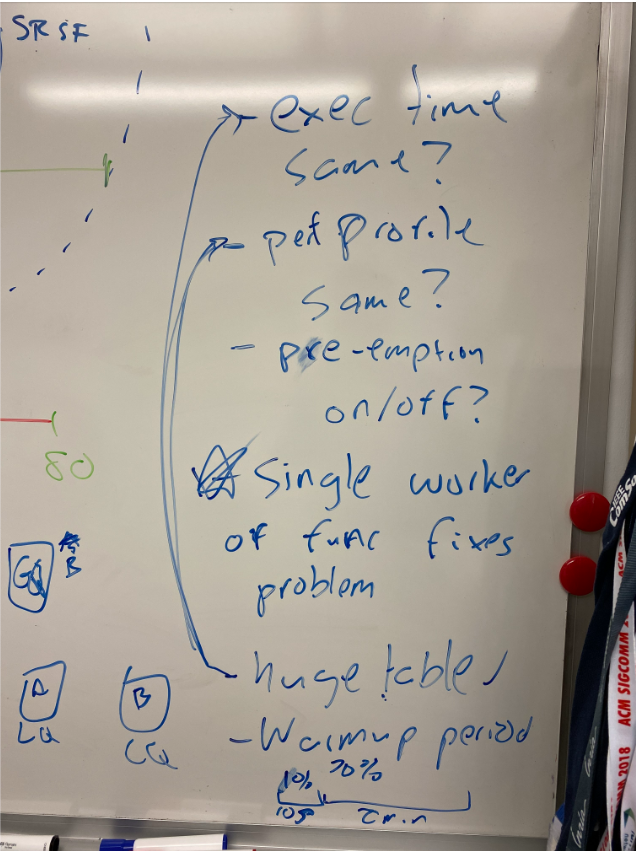 SRSF
- exec time
same?
- perf profile
same?
- pre-emption
on/off?
80
Single worker
of func fixes
problem
GQ
B
A
LQ
B
- huge tables
- Warmup period
10%
10s
2min
IEEE
ComSoc
ACM SIGCOMM
2018